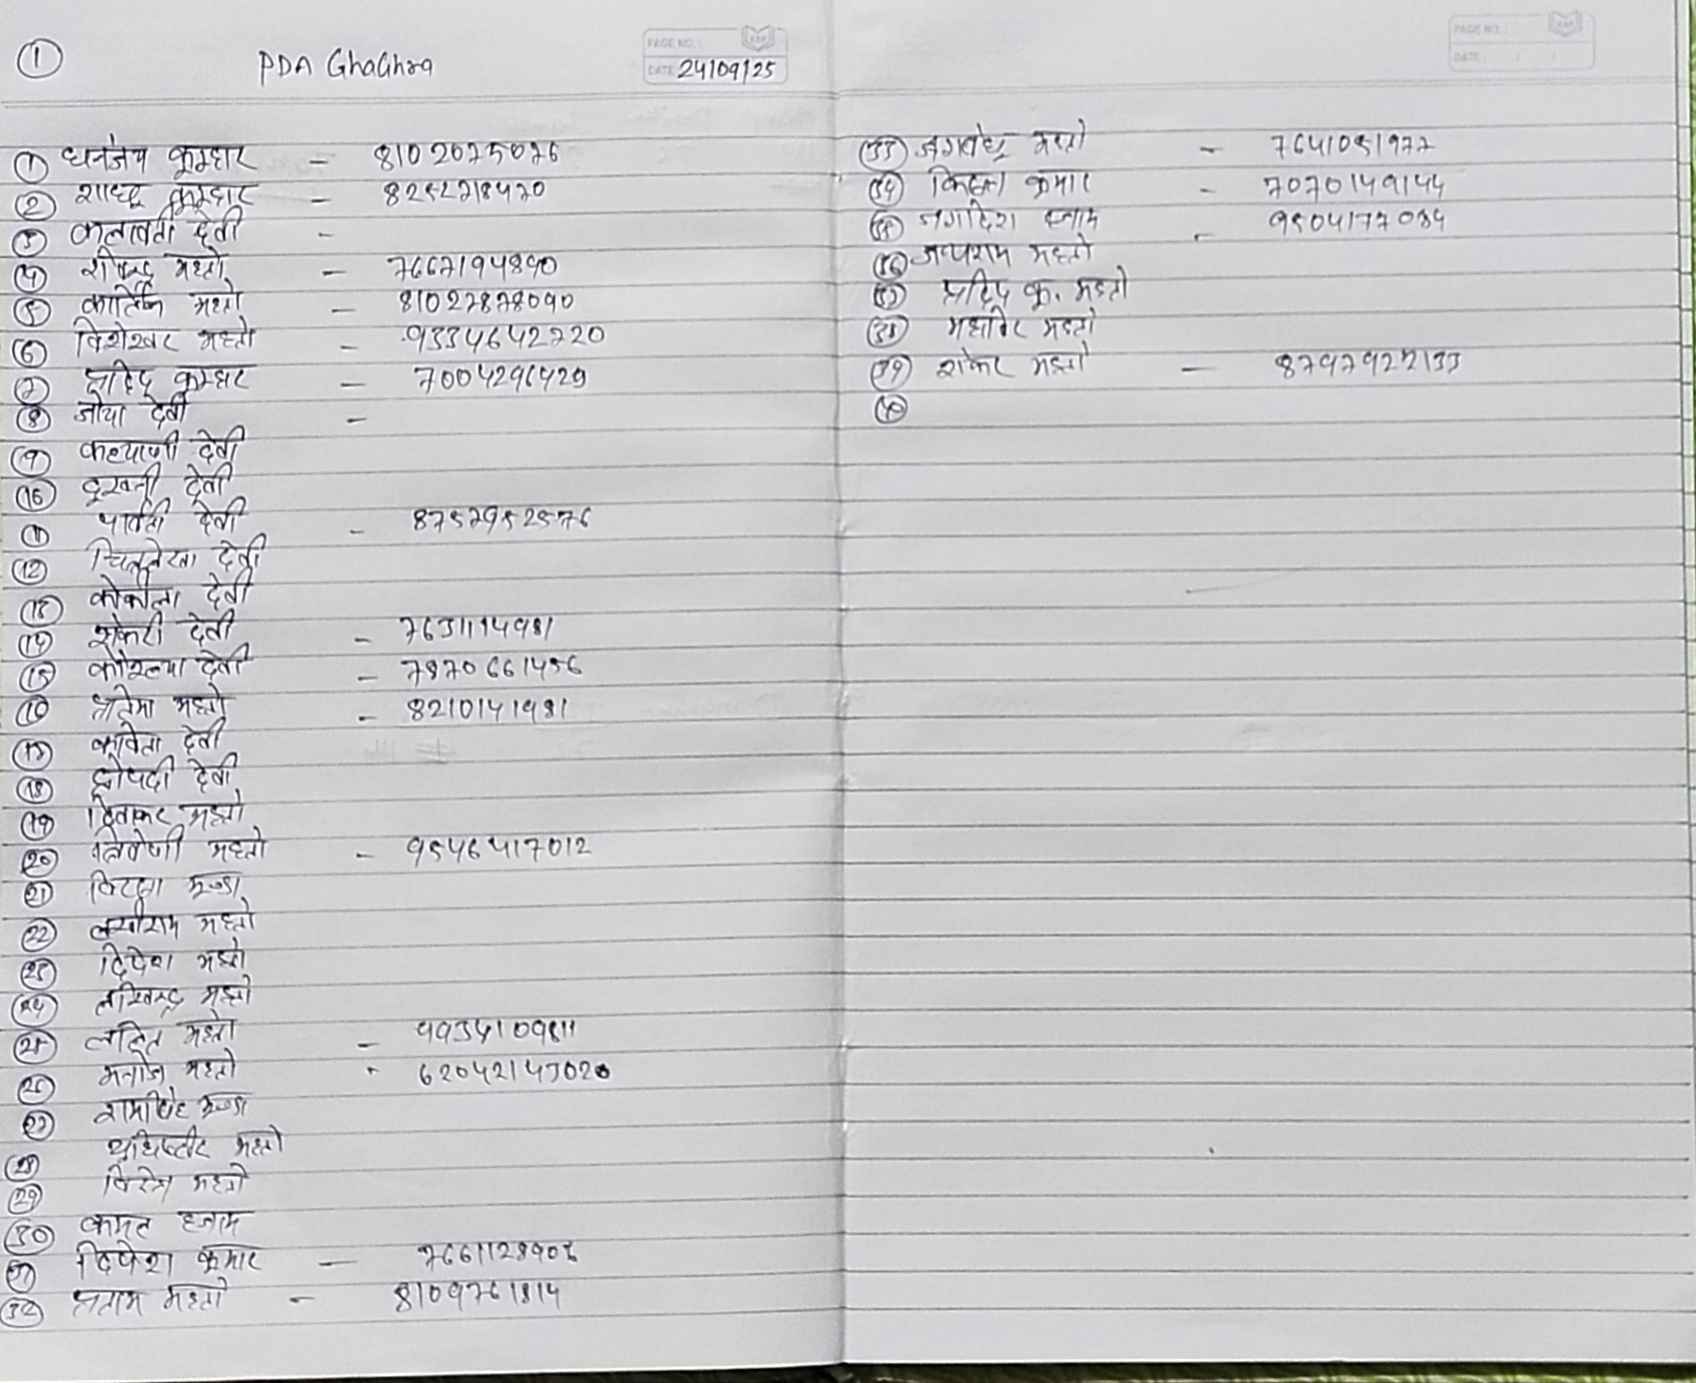 ①
PDA GhaGhra
PAGE NO.:
DATE: 24/09/25
① धनंजय कुम्हार - 8102075076
② शाधु कुम्हार - 8252718470
③ कलावती देवी -
④ शैलेन्द्र महतो - 7667194840
⑤ कार्तिक महतो - 8102787090
⑥ विशेश्वर महतो - 9334642720
⑦ प्रदिप कुम्हार - 7004296429
⑧ जोया देवी -
⑨ कल्याणी देवी
⑩ दुखनी देवी
⑪ पार्वती देवी - 8757952576
⑫ चित्रलेखा देवी
⑬ कोकीला देवी
⑭ शंकरी देवी - 7631114981
⑮ कौशल्या देवी - 7970661456
⑯ प्रतिमा महतो - 8210141981
⑰ कविता देवी
⑱ द्रोपदी देवी
⑲ दिवाकर महतो
⑳ त्रिवेणी महतो - 9546417012
㉑ मुण्डा
㉒ लखीराम महतो
㉓ दिपेश महतो
㉔ लखिन्द्र महतो
㉕ ललित महतो - 9934109811
㉖ मनोज महतो - 6204214302
㉗ मुण्डा
㉘ युधिष्टीर महतो
㉙ महतो
㉚ कमल हजाम
㉛ दिपेश कुमार - 7661128906
㉜ प्रताप महतो - 8109761814
PAGE NO.:
DATE: / /
㉝ महतो - 7641051977
㉞ कुमार - 7070149144
㉟ जगदिश हजाम - 9504177034
㊱ जयराम महतो
㊲ प्रदिप कु. महतो
㊳ महाविर महतो
㊴ शंकर महतो - 8797922133
㊵